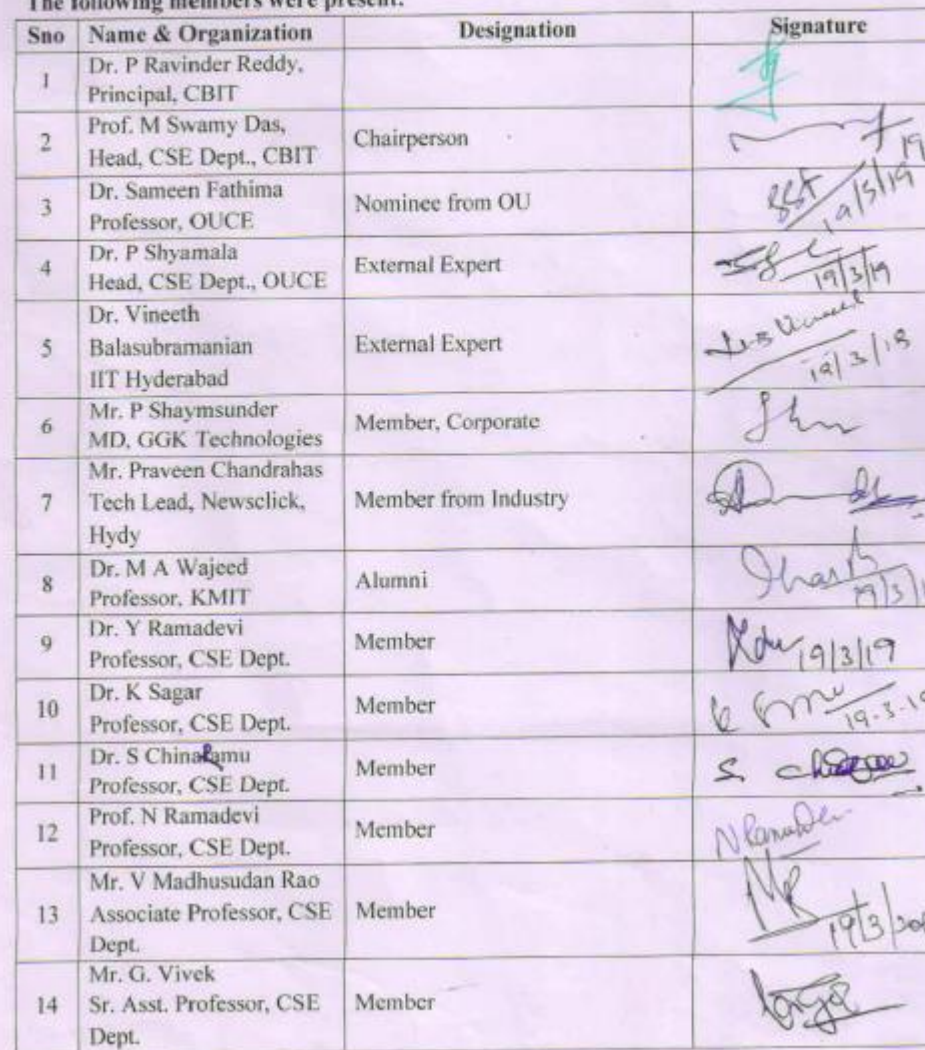 The following members were present:
Sno Name & Organization Designation Signature
1 Dr. P Ravinder Reddy,
Principal, CBIT
2 Prof. M Swamy Das,
Head, CSE Dept., CBIT Chairperson 19
3 Dr. Sameen Fathima
Professor, OUCE Nominee from OU 19/3/19
4 Dr. P Shyamala
Head, CSE Dept., OUCE External Expert 19/3/19
5 Dr. Vineeth
Balasubramanian
IIT Hyderabad External Expert
6 Mr. P Shaymsunder
MD, GGK Technologies Member, Corporate
7 Mr. Praveen Chandrahas
Tech Lead, Newsclick,
Hydy Member from Industry
8 Dr. M A Wajeed
Professor, KMIT Alumni
9 Dr. Y Ramadevi
Professor, CSE Dept. Member 19/3/19
10 Dr. K Sagar
Professor, CSE Dept. Member 19.3.19
11 Dr. S ChinaRamu
Professor, CSE Dept. Member
12 Prof. N Ramadevi
Professor, CSE Dept. Member N Ramadevi
13 Mr. V Madhusudan Rao
Associate Professor, CSE
Dept. Member 19/3/
14 Mr. G. Vivek
Sr. Asst. Professor, CSE
Dept. Member